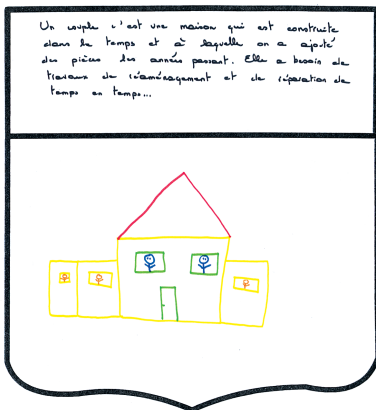 Un couple c'est une maison qui est construite
dans le temps et à laquelle on a ajouté
des pièces les années passant. Elle a besoin de
travaux de réaménagement et de réparation de
temps en temps...